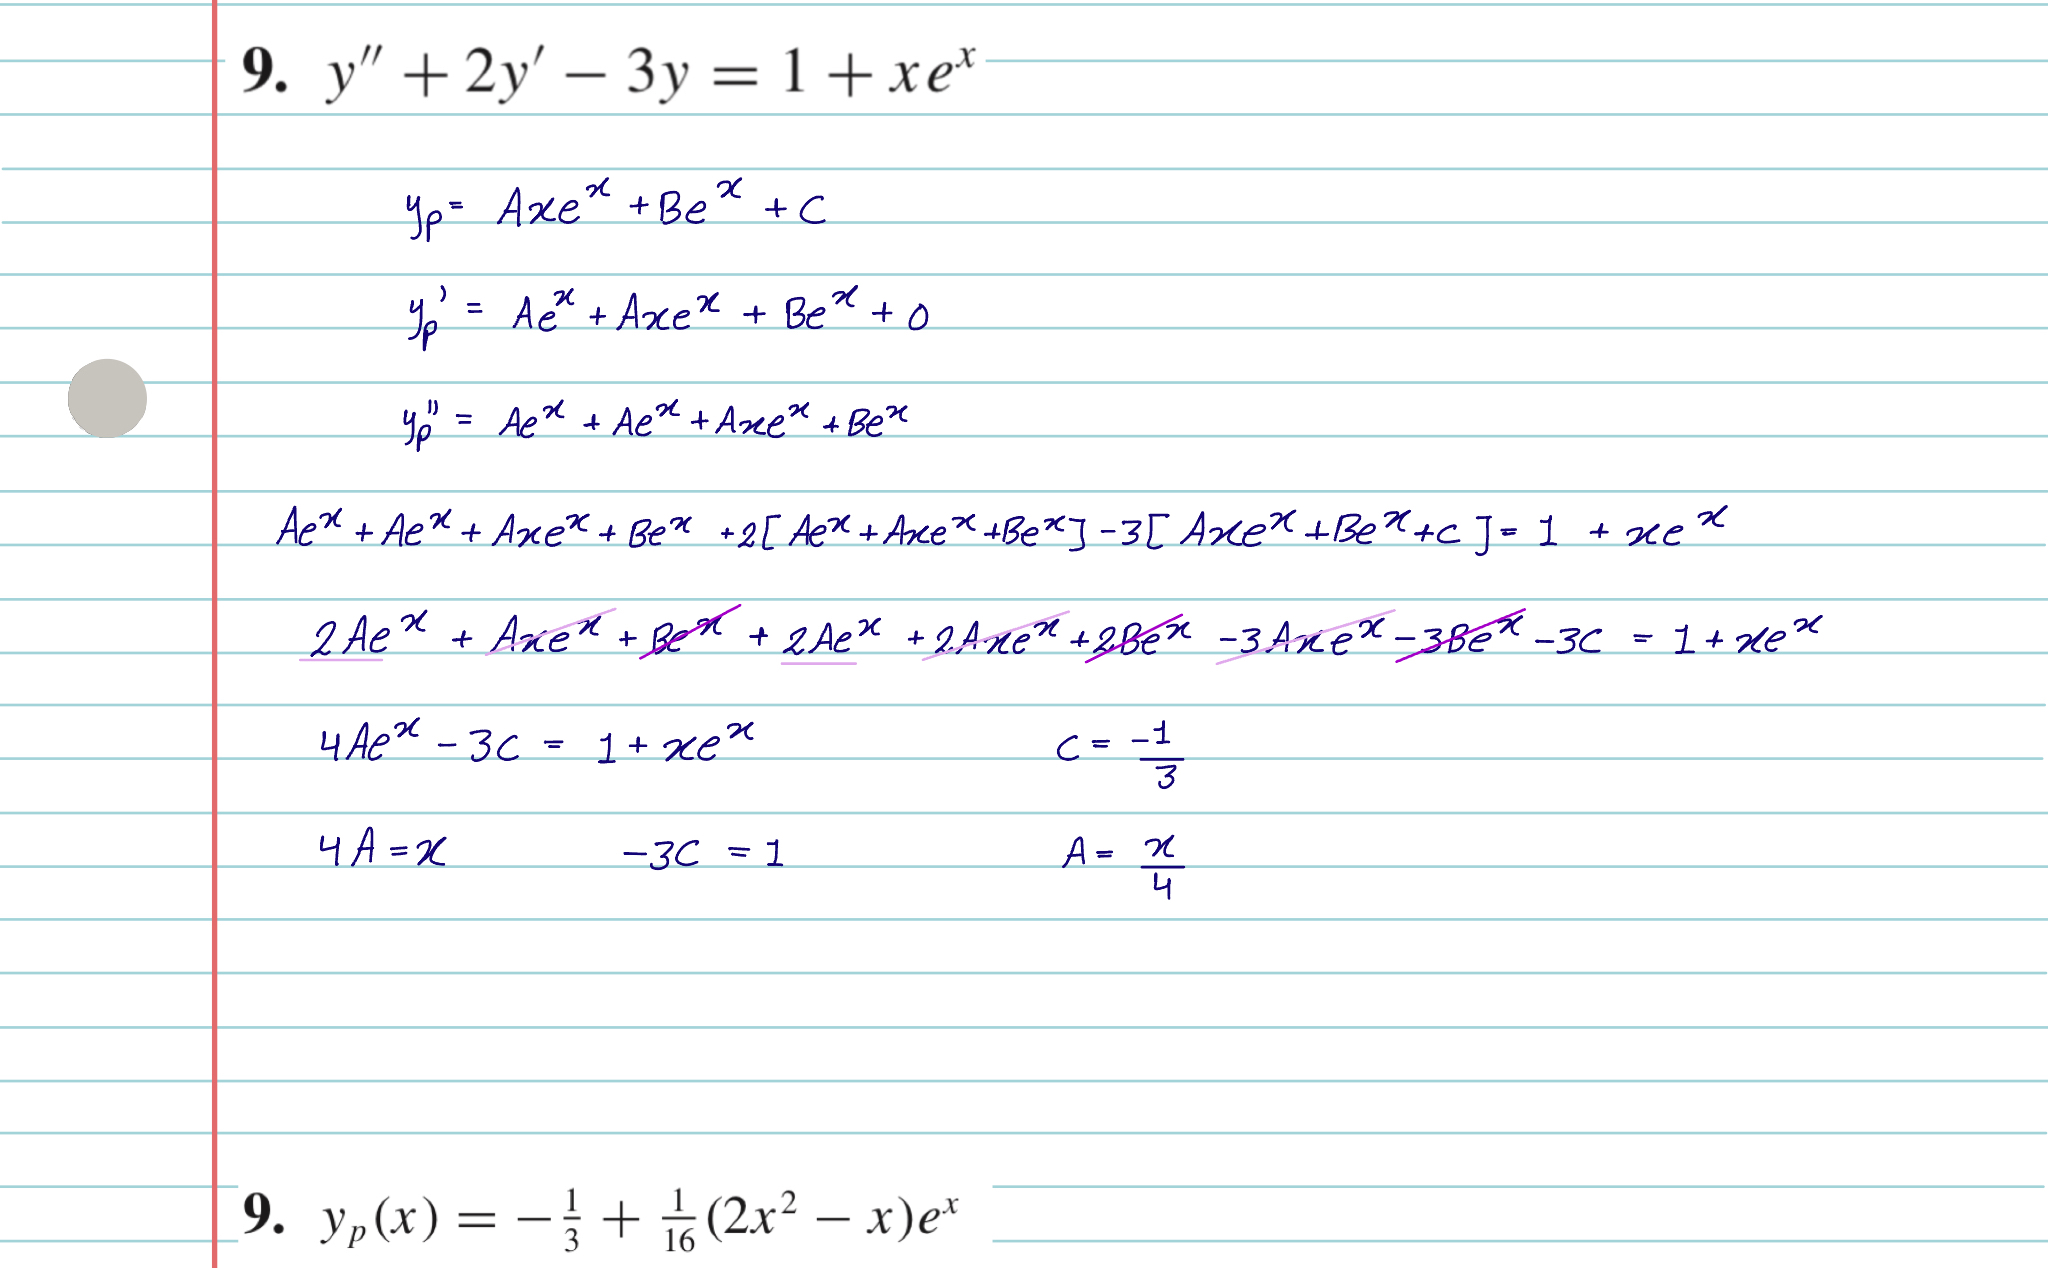 9. y″ + 2y′ − 3y = 1 + xeˣ
yₚ = Axeˣ + Beˣ + C
yₚ' = Aeˣ + Axeˣ + Beˣ + 0
yₚ'' = Aeˣ + Aeˣ + Axeˣ + Beˣ
Aeˣ + Aeˣ + Axeˣ + Beˣ + 2[ Aeˣ + Axeˣ + Beˣ ] - 3[ Axeˣ + Beˣ + C ] = 1 + xeˣ
2Aeˣ + Axeˣ + Beˣ + 2Aeˣ + 2Axeˣ + 2Beˣ - 3Axeˣ - 3Beˣ - 3C = 1 + xeˣ
4Aeˣ - 3C = 1 + xeˣ C = -1/3
4A = x -3C = 1 A = x/4
9. yₚ(x) = −1/3 + 1/16(2x² − x)eˣ